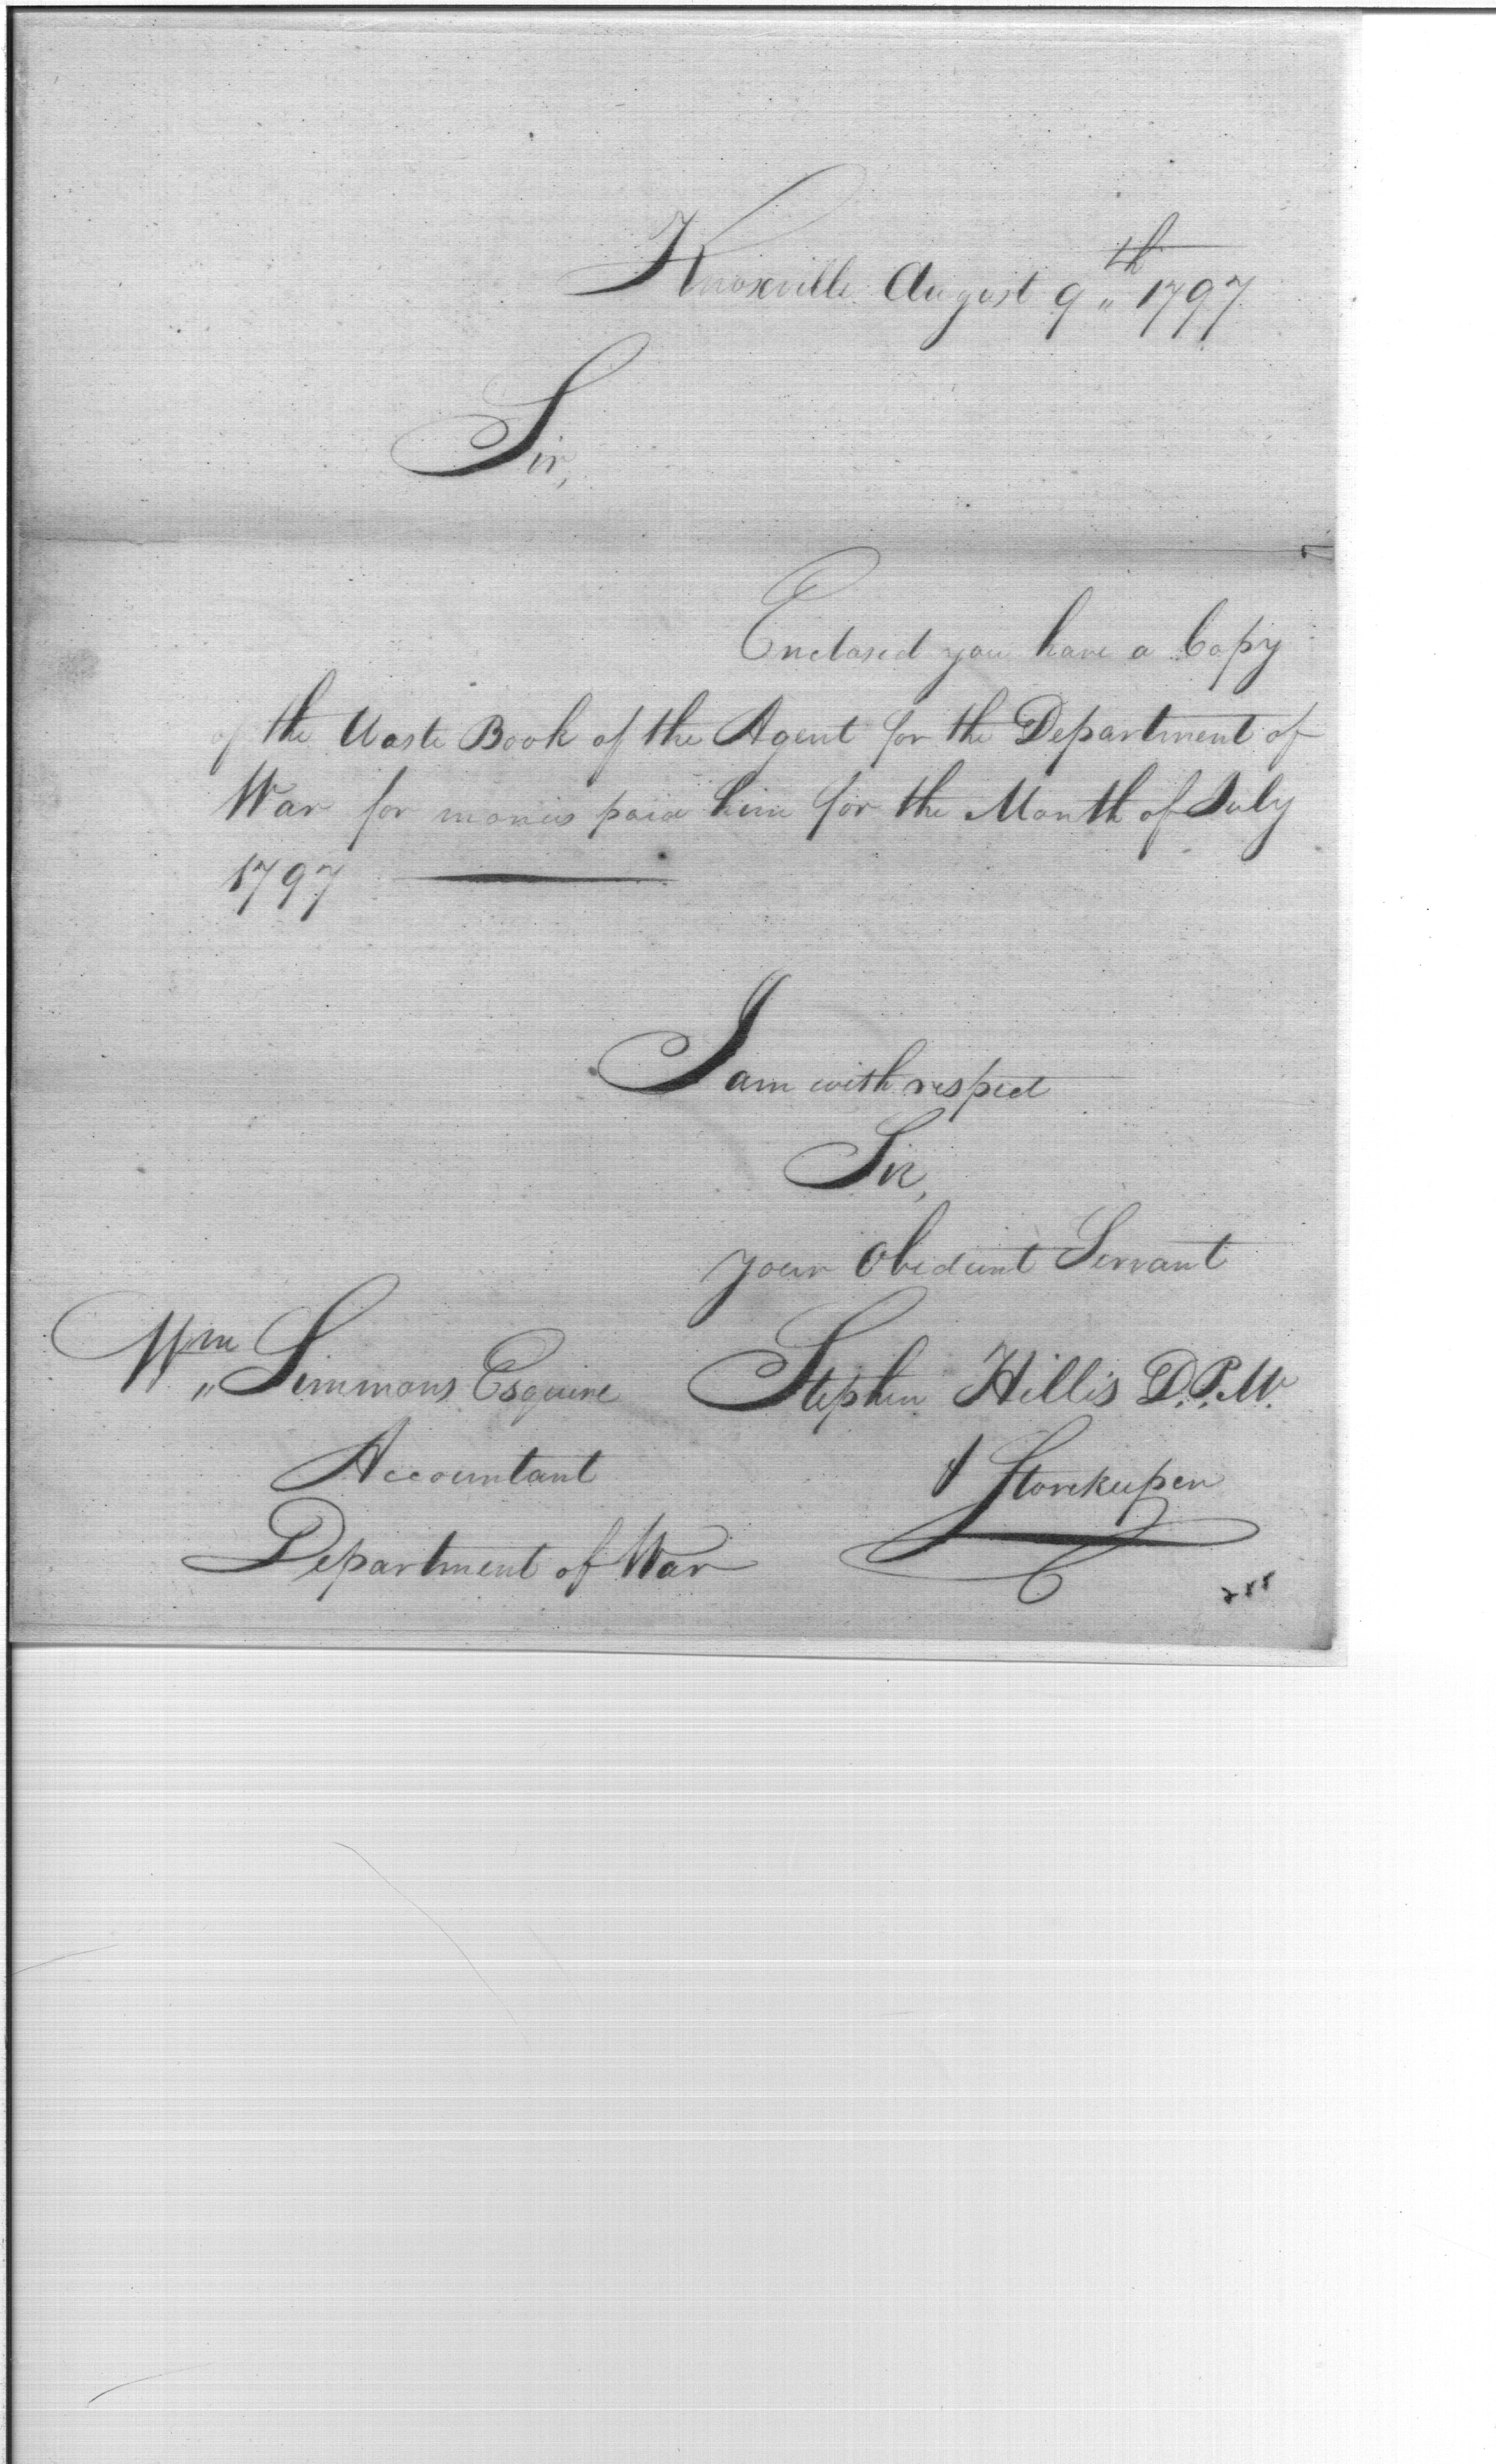 Knoxville August 9th 1797
Sir,
Enclosed you have a Copy
of the Waste Book of the Agent for the Department of
War for monies paid him for the Month of July
1797
I am with respect
Sir,
your Obedient Servant
Wm Simmons Esquire
Accountant
Department of War
Stephen Hillis D.P.M.
& Storekeeper